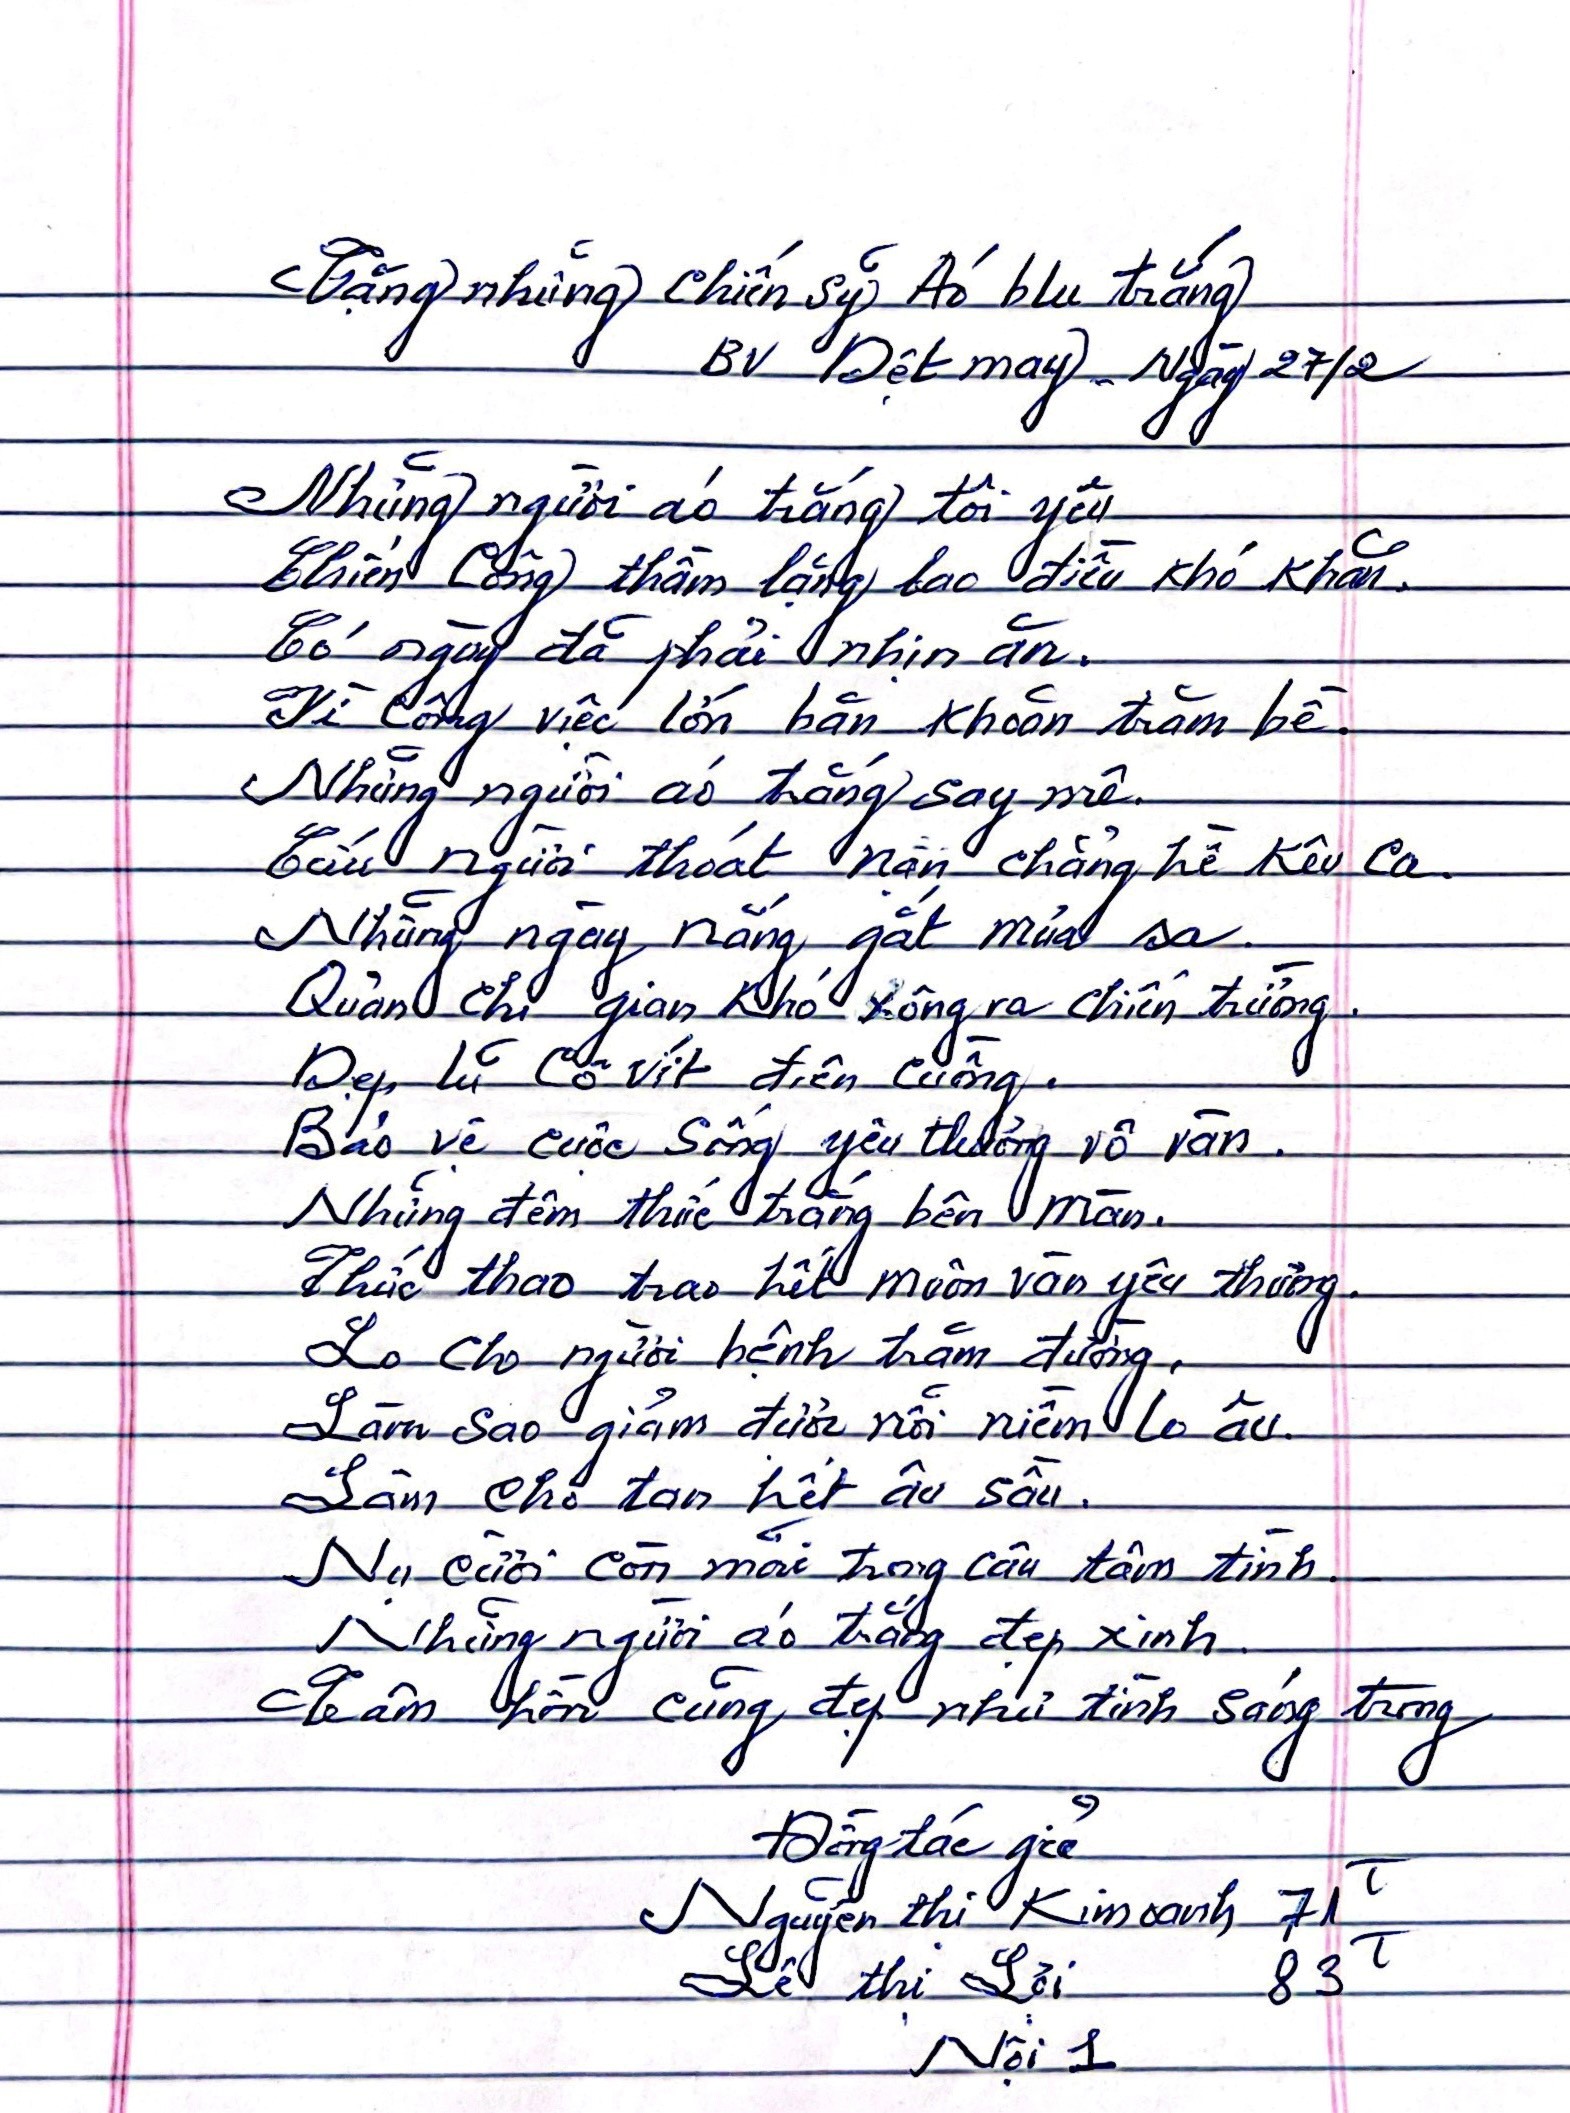 Tặng những chiến sỹ Áo blu trắng
BV Dệt may - Ngày 27/2
Những người áo trắng tôi yêu
Chiến Công thầm lặng bao điều khó khăn.
Có ngày đã phải nhịn ăn.
Vì công việc lớn băn khoăn trăm bề.
Những người áo trắng say mê.
Cứu người thoát nạn chẳng hề kêu ca.
Những ngày nắng gắt mưa sa.
Quản chi gian khó xông ra chiến trường.
Dẹp lũ Cô vít điên cuồng.
Bảo vệ cuộc sống yêu thương vô vàn.
Những đêm thức trắng bên màn.
Thức thao trao hết muôn vàn yêu thương.
Lo cho người bệnh trăm đường,
Làm sao giảm được nỗi niềm lo âu.
Làm cho tan hết âu sầu.
Nụ cười còn mãi trong câu tâm tình.
Những người áo trắng đẹp xinh.
Tâm hồn cũng đẹp như tình sáng trong
Đồng tác giả
Nguyễn thị Kim oanh 71T
Lê thị Lợi 83T
Nội 1